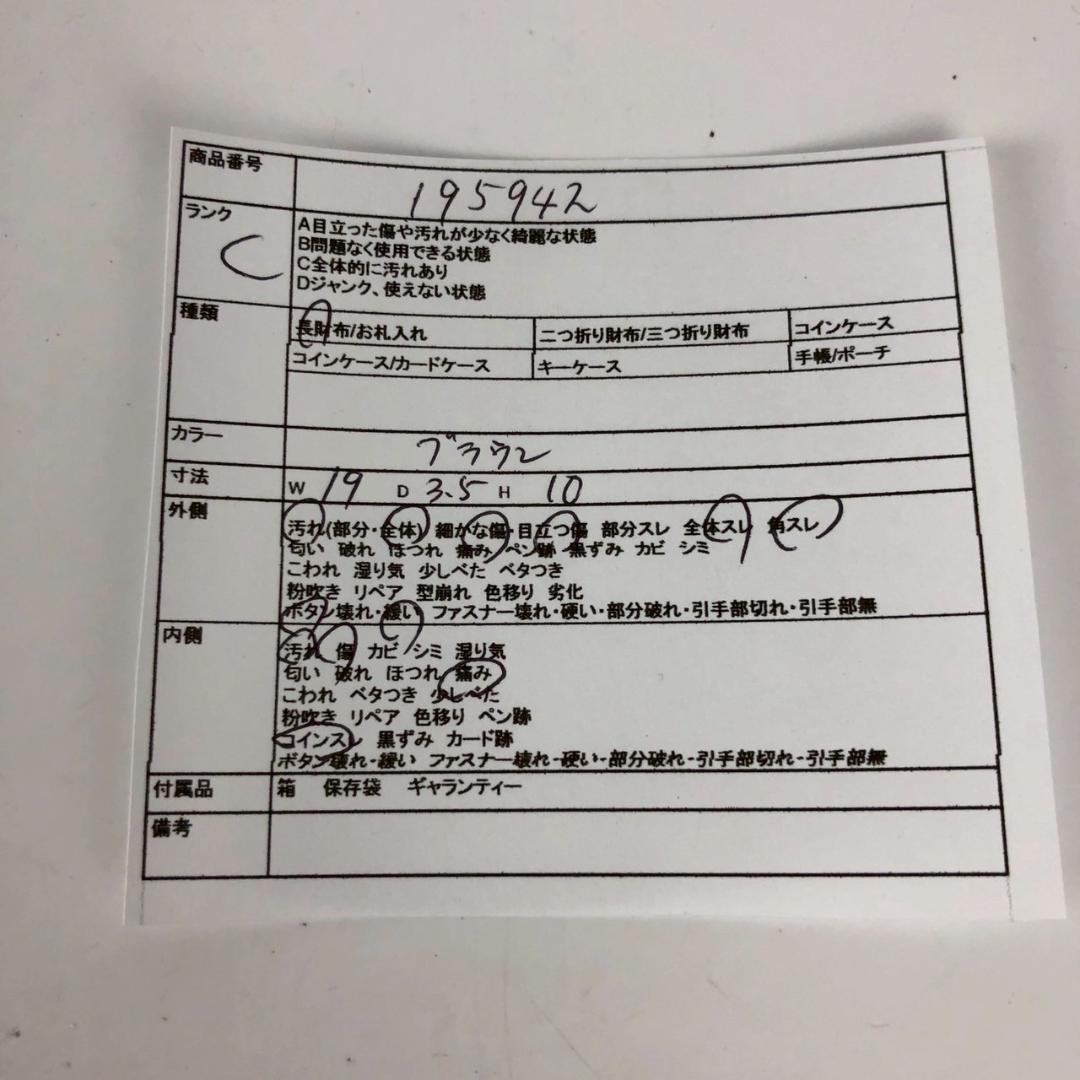 商品番号 195942
ランク C
A目立った傷や汚れが少なく綺麗な状態
B問題なく使用できる状態
C全体的に汚れあり
Dジャンク、使えない状態
種類
長財布/お札入れ 二つ折り財布/三つ折り財布 コインケース
コインケース/カードケース キーケース 手帳/ポーチ
カラー ブラウン
寸法 W 19 D 3.5 H 10
外側 汚れ(部分・全体) 細かな傷・目立つ傷 部分スレ 全体スレ 角スレ
匂い 破れ ほつれ 痛み ペン跡 黒ずみ カビ シミ
こわれ 湿り気 少しべた ベタつき
粉吹き リペア 型崩れ 色移り 劣化
ボタン壊れ・緩い ファスナー壊れ・硬い・部分破れ・引手部切れ・引手部無
内側 汚れ 傷 カビ シミ 湿り気
匂い 破れ ほつれ 痛み
こわれ ベタつき 少しべた
粉吹き リペア 色移り ペン跡
コインスレ 黒ずみ カード跡
ボタン壊れ・緩い ファスナー壊れ・硬い・部分破れ・引手部切れ・引手部無
付属品 箱 保存袋 ギャランティー
備考